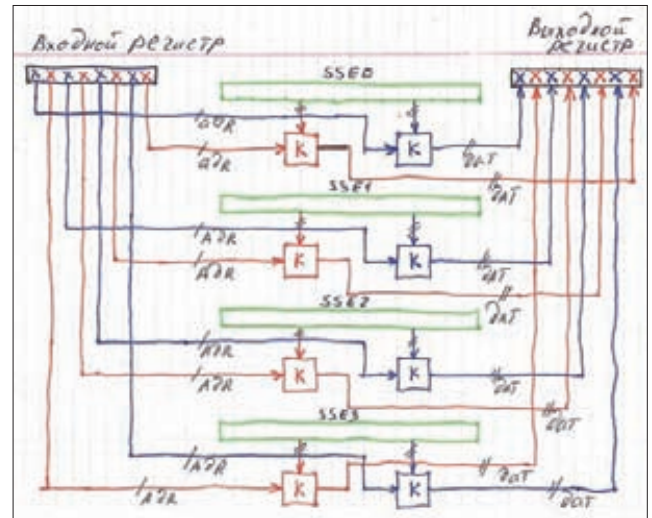 Входной регистр
Выходной
регистр
SSE0
адR
адR
K
K
дАТ
дАТ
SSE1
АдR
АдR
K
K
дАТ
дАТ
SSE2
АдR
АдR
K
K
даТ
даТ
SSE3
АдR
АдR
K
K
даТ
даТ